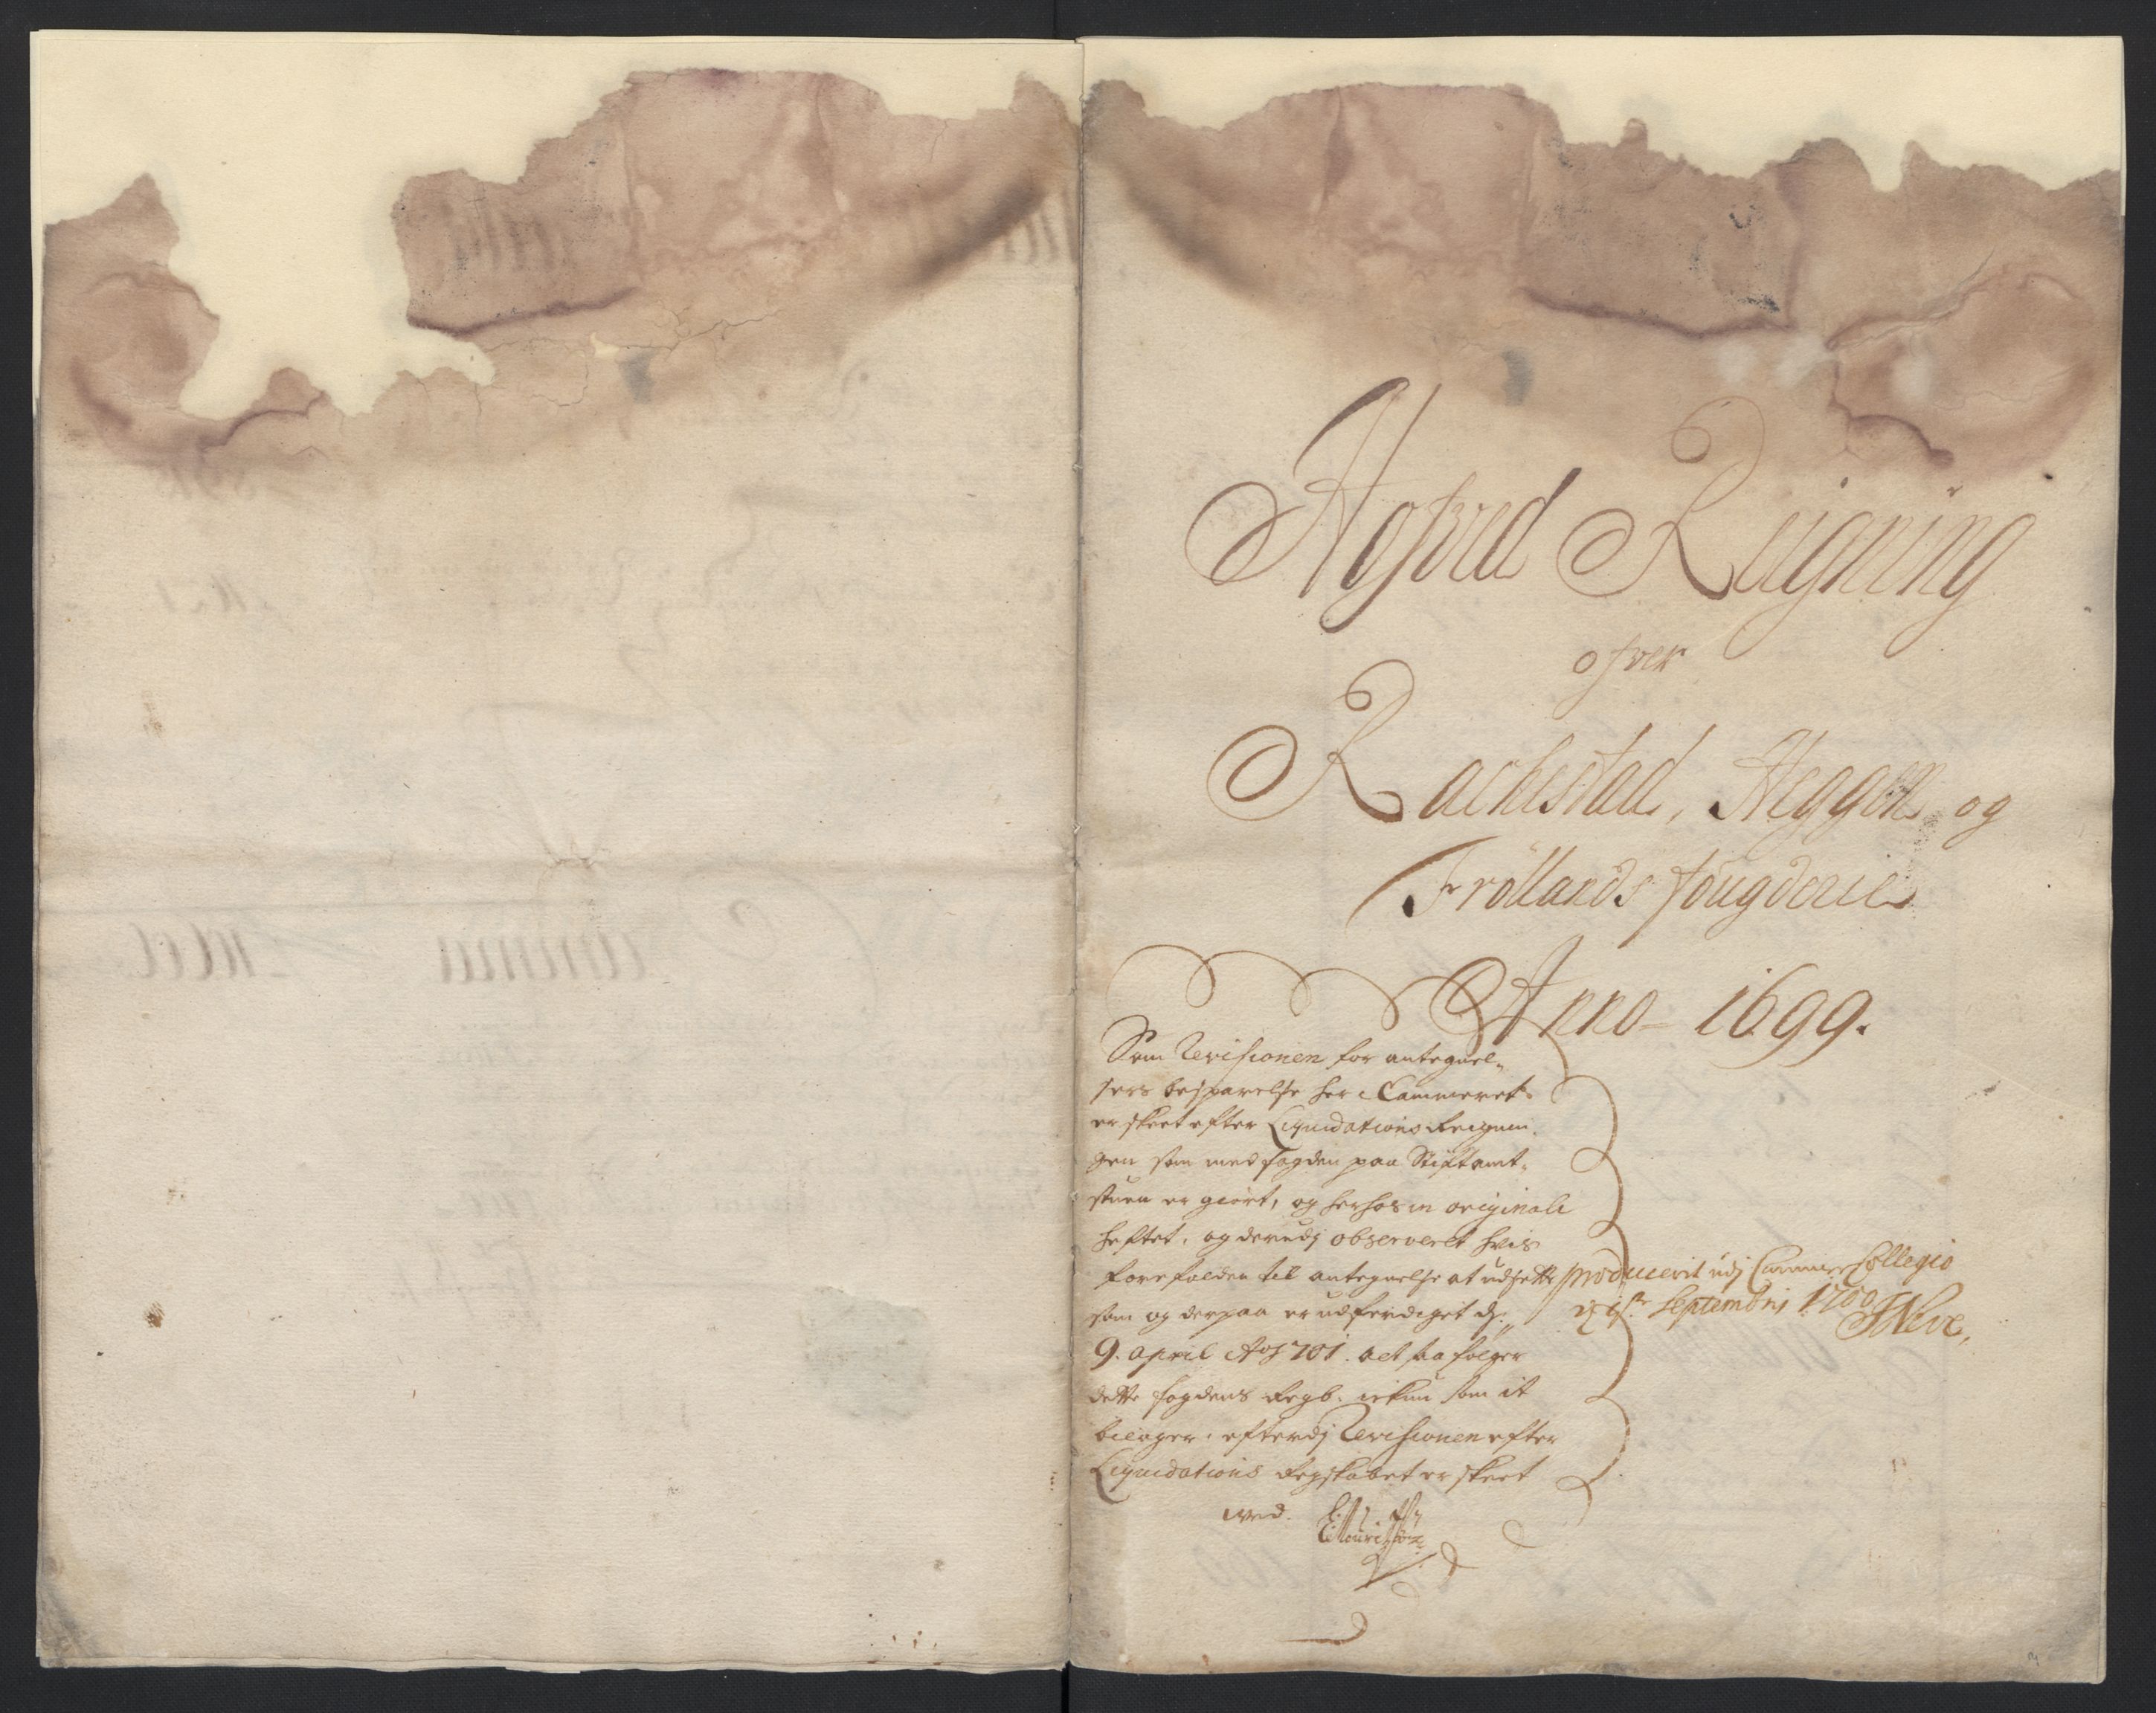 Hofved Reigning
ofver
Rachestad, Heggen og
Fröllands fougderie
Anno 1699.
Som Revisionen for antegnel-
sers besparelse her i Cammeret
er skeet efter Liquidations Reignin-
gen som med fogden paa Stiftamt-
stuen er giort, og herhos in originali
heftet, og derudj observeret hvis
forefalden til antegnelse at udsette
som og derpaa er udferdiget d.
9. april Ao 701. alt saa følger
dette fogdens Regb. ickun som it
bielager, efterdj Revisionen efter
Liquidations Regskabet er skeet
ved.
producerit udj Cammer Collegio
Septembris 1700